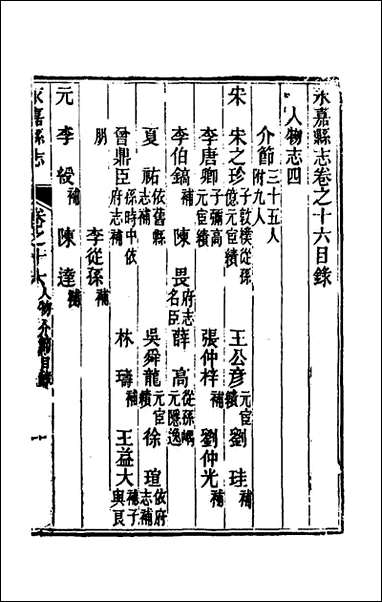 永嘉縣志卷之十六目錄
人物志四
介節三十五人附九人
宋 宋之珍子敩樸從孫億元宦績 王公彥元宦績 劉珪補
李唐卿子彌高元宦績 張仲梓補 劉仲光補
李伯鎬補 陳畏府志名臣 薛高從孫嵎元隱逸
夏祐依舊縣志補 吳舜龍元宦績 徐瑄依府志補
曾鼎臣孫時中依府志補 林璹補 王益大補子與艮
朋 李從孫補
元 李綬補 陳達補
永嘉縣志 卷之十六 人物 介節 目錄 一